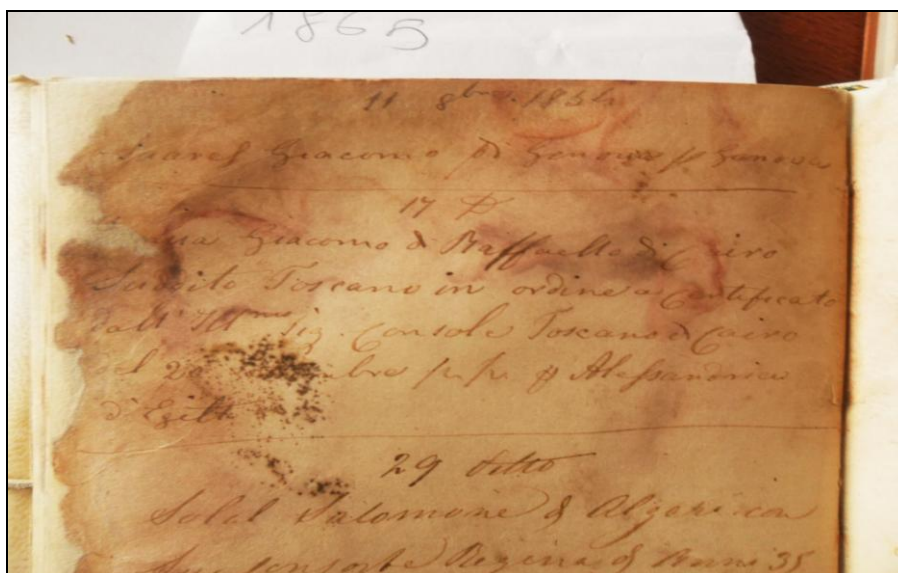 1865
11 8bre. 1854
Giacomo di Genova p Genova
17 D
Giacomo di Raffaello di Cairo
Suddito Toscano in ordine a Certificato
dall' Illmo Sig. Console Toscano di Cairo
del p.p. p Alessandria
d'Egitto
29 detto
Solal Salomone di Algeri con
sua consorte Regina di Anni 35